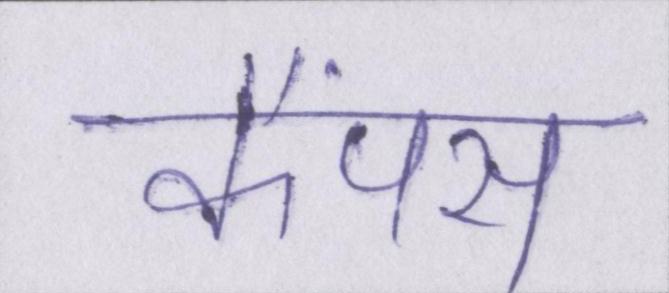 कैंपस